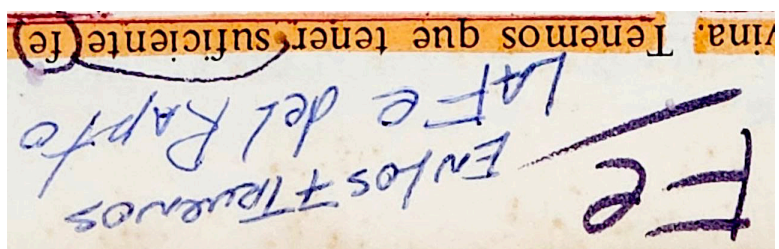 Fe
EN LOS 7 TRUENOS
LA Fe del RApto
vina. Tenemos que tener suficiente fe